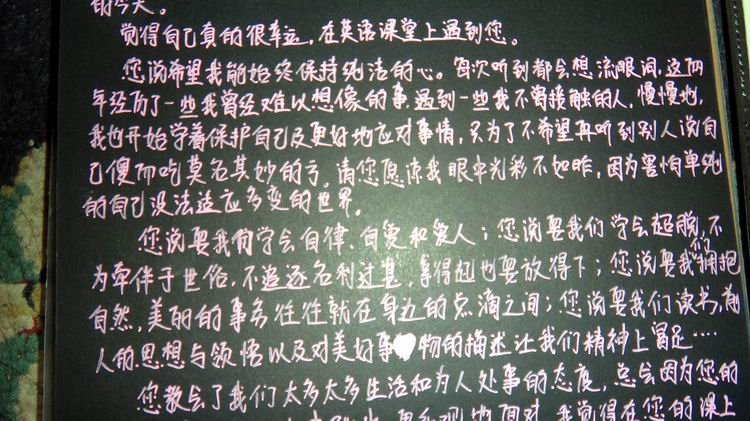 的今天。
觉得自己真的很幸运，在英语课堂上遇到您。
您说希望我能始终保持纯洁的心。每次听到都会想流眼泪，这两
年经历了一些我曾经难以想像的事，遇到一些我不曾接触的人，慢慢地，
我也开始学着保护自己及更好地应对事情，只为了不希望再听到别人说自
己傻而吃莫名其妙的亏。请您原谅我眼中光彩不如昨，因为害怕单纯
的自己没法适应多变的世界。
您说要我们学会自律、自爱和爱人；您说要我们学会超脱，不
为牵伴于世俗，不追逐名利过甚，拿得起也要放得下；您说要我们拥抱
自然，美丽的事务往往就在身边的点滴之间；您说要我们读书，前
人的思想与领悟以及对美好事物的描述让我们精神上富足····
您教会了我们太多太多生活和为人处事的态度，总会因为您的
面对，我觉得在您的课上